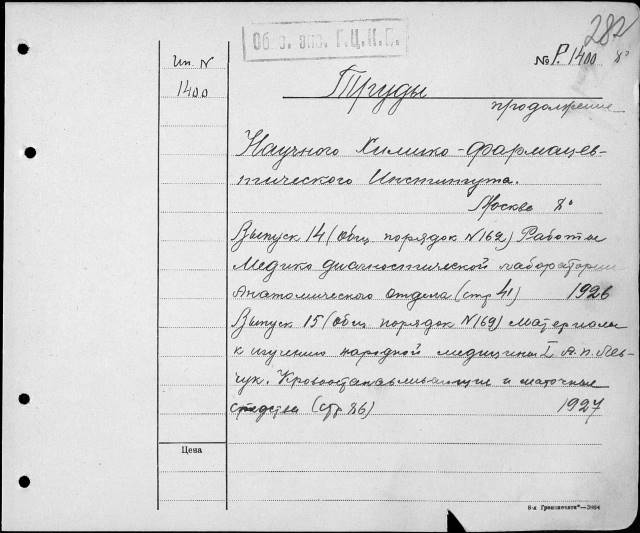 282
Обяз. экз. Г.Ц.К.П.
Ин. N
1400
№ Р. 1400
8°
Труды
продолжение
Научного Химико-фармацев-
тического Института.
Москва 8°
Выпуск 14 (общ порядок N162) Работы
Медико диагностической лаборатории
Анатомического отдела (стр 41) 1926
Выпуск 15 (общ порядок N169) Материалы
к изучению народной медицины I А.П. Лев-
чук. Кровоостанавливающие и маточные
средства (стр 86) 1927
Цена
8-я „Гравпечати"—3864